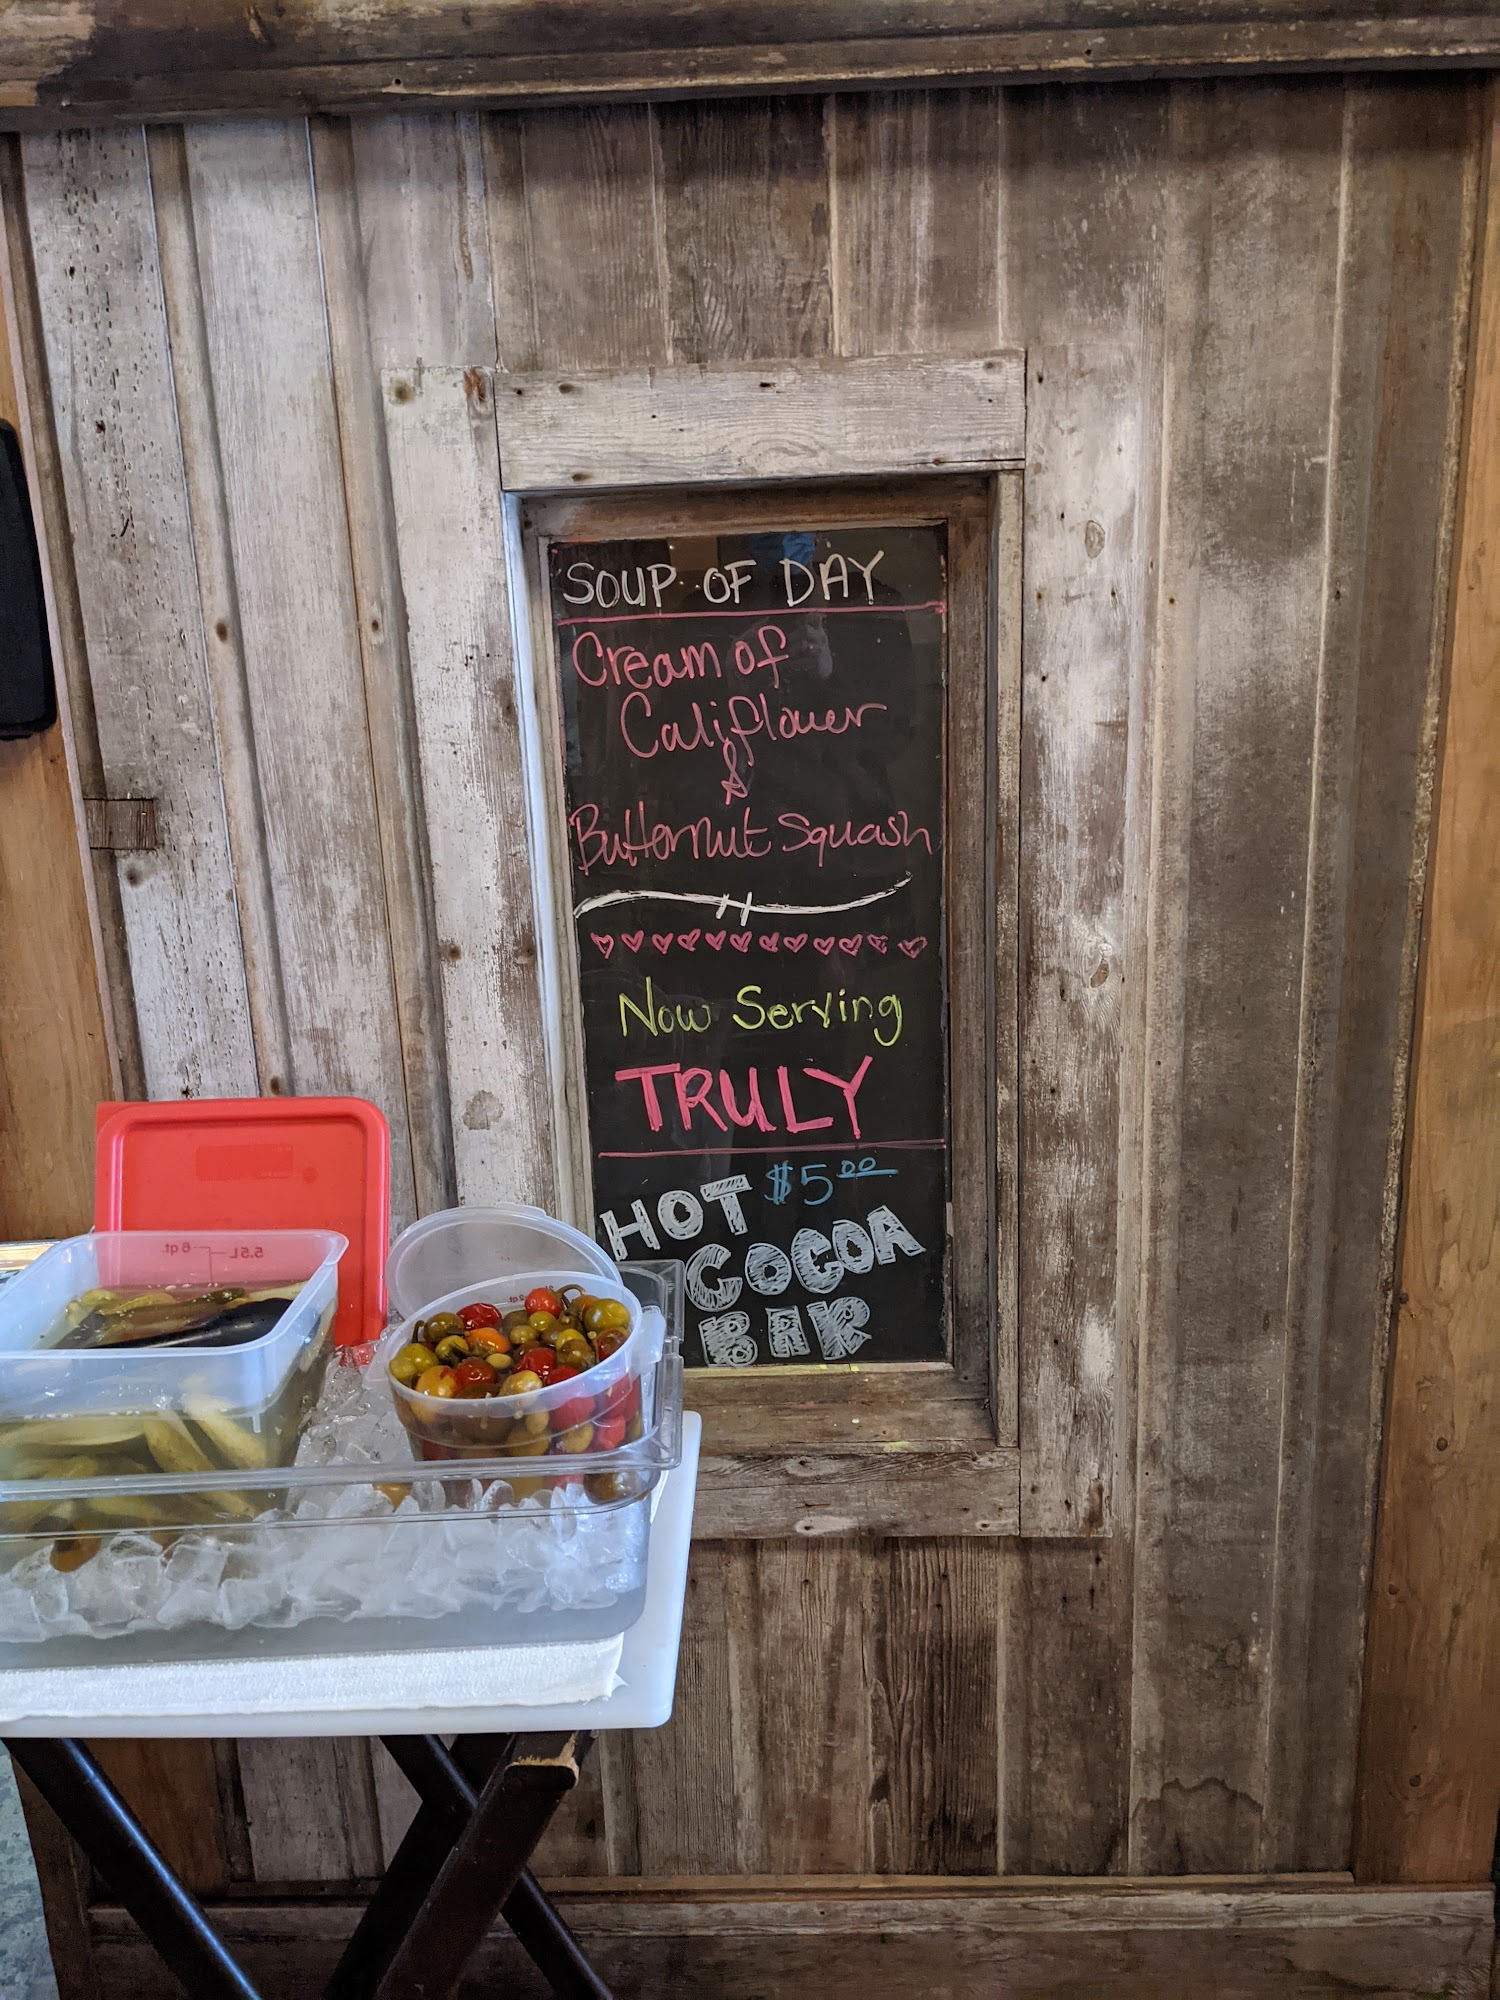 SOUP OF DAY
Cream of
Califlower
&
Butternut Squash
Now Serving
TRULY
$5.00
HOT
COCOA
BAR
6 qt. 5.5L